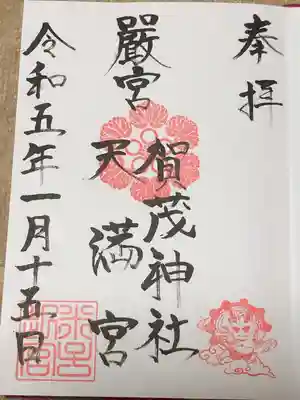 奉拝
賀茂神社
嚴宮
天満宮
令和五年一月十五日